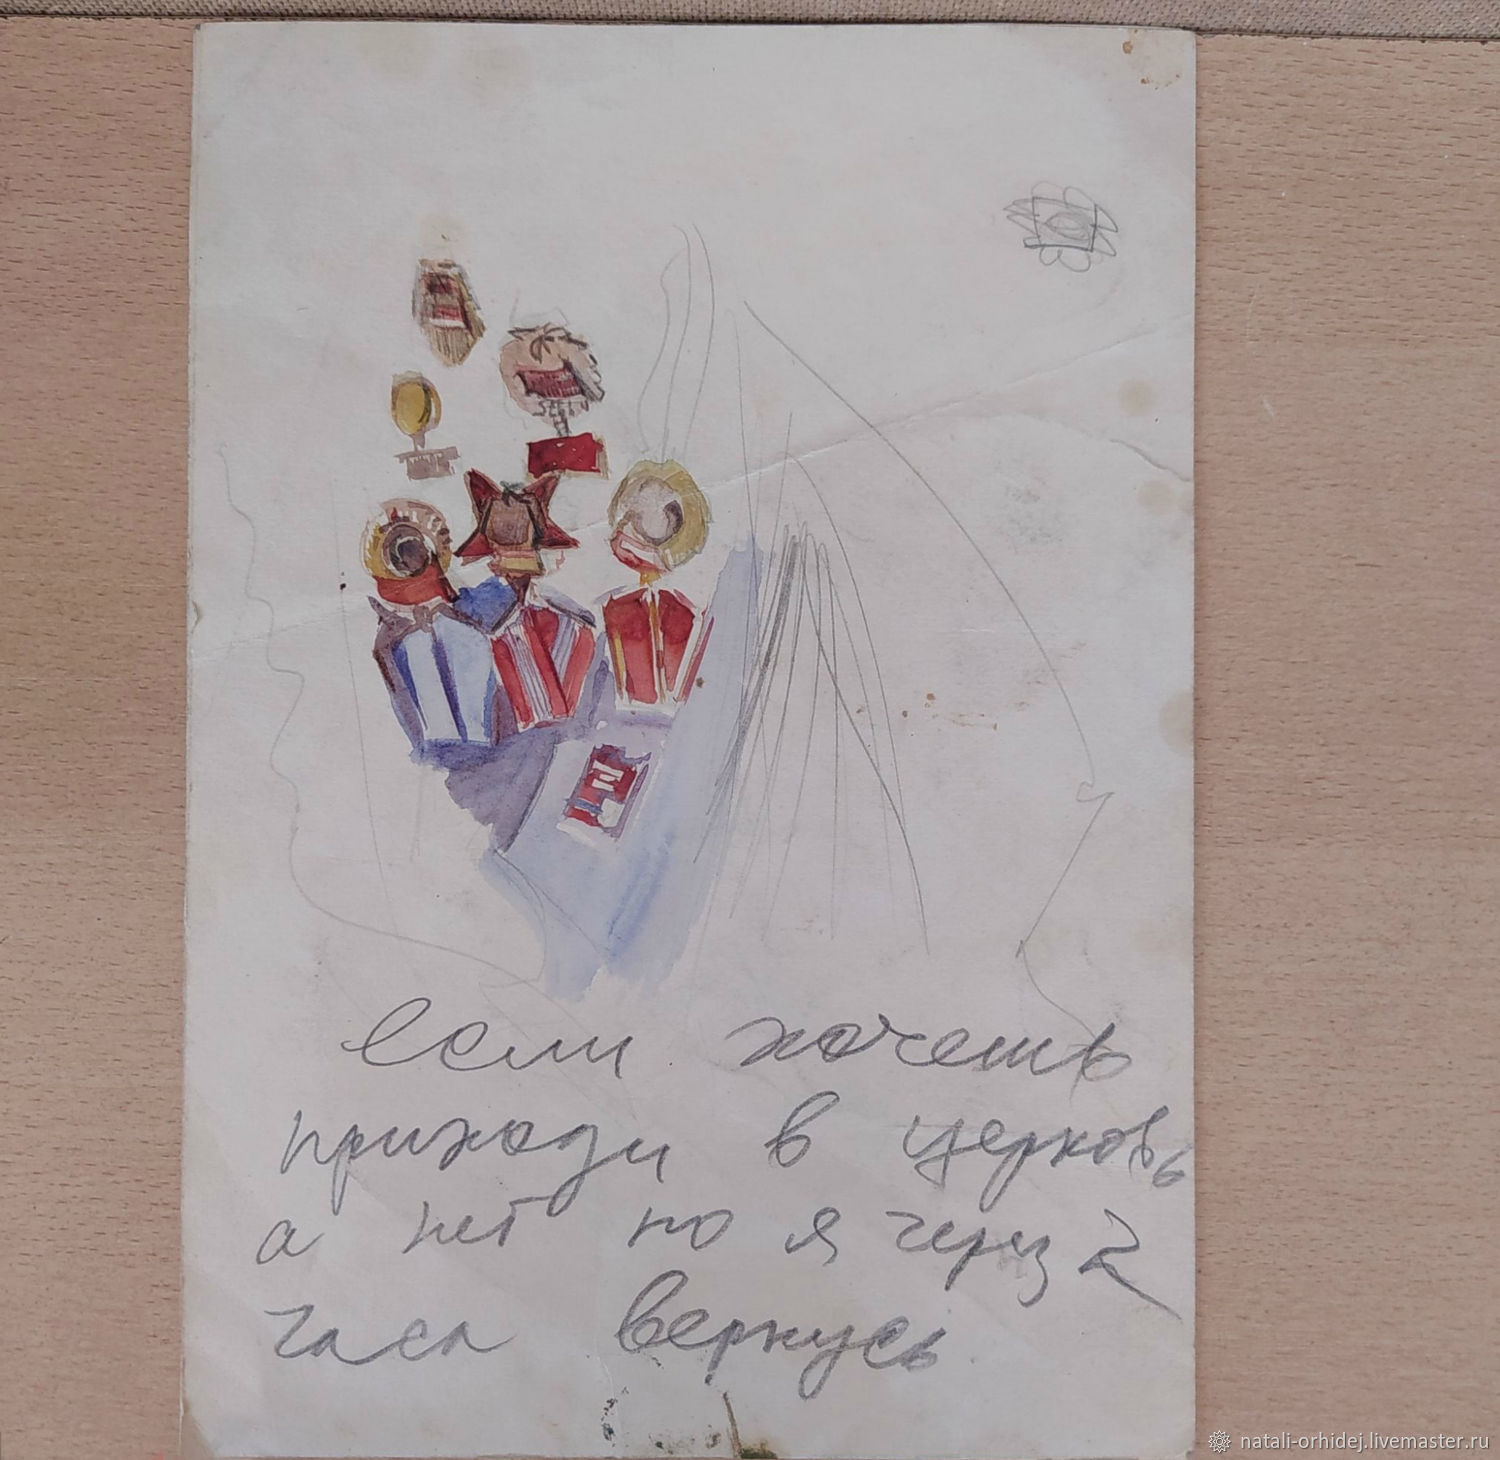 если хочешь
приходи в церковь
а нет но я через 2
часа вернусь
natali-orhidej.livemaster.ru